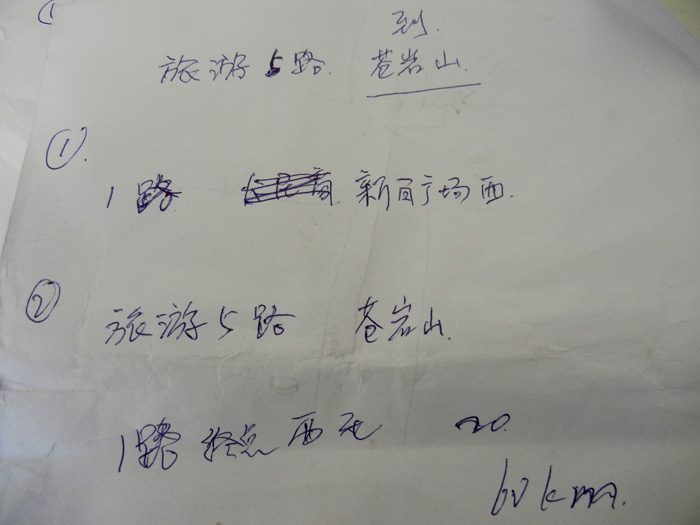 到.
旅游5路. 苍岩山.
①.
1路 新百广场西.
②
旅游5路 苍岩山.
1路 终点西王 20.
60km.